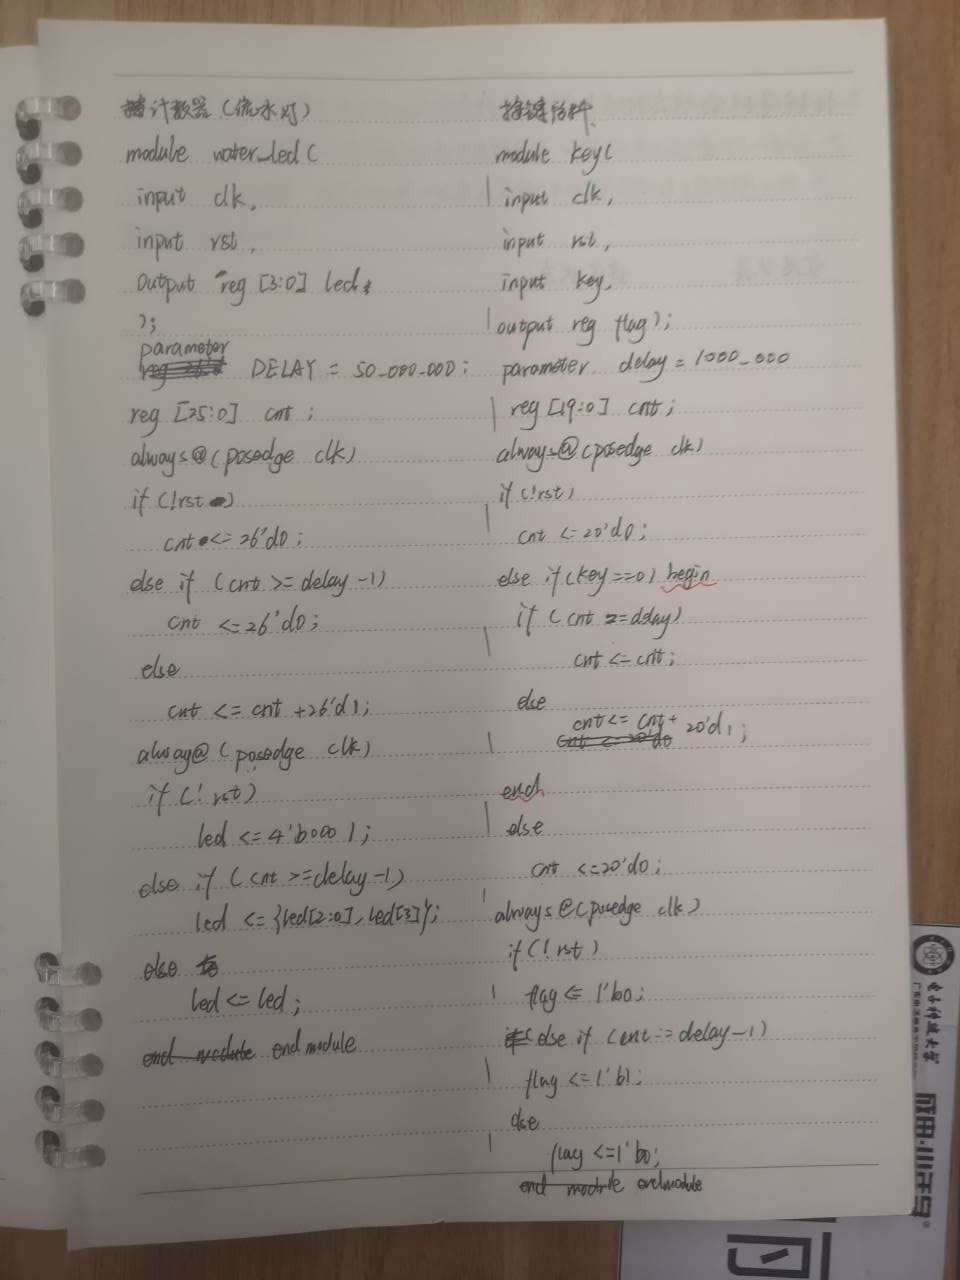 计数器(流水灯)
module water_led(
input clk,
input rst,
output reg [3:0] led
);
parameter DELAY = 50_000_000;
reg [25:0] cnt;
always@(posedge clk)
if (!rst)
cnt <= 26'd0;
else if (cnt >= delay -1)
cnt <= 26'd0;
else
cnt <= cnt + 26'd1;
alway@(posedge clk)
if (!rst)
led <= 4'b0001;
else if (cnt >= delay -1)
led <= {led[2:0], led[3]};
else
led <= led;
end module endmodule
按键消抖
module key(
input clk,
input rst,
input key,
output reg flag);
parameter delay = 1000_000
reg [19:0] cnt;
always@(posedge clk)
if (!rst)
cnt <= 20'd0;
else if (key==0) begin
if (cnt == delay)
cnt <= cnt;
else
cnt <= cnt + 20'd1;
cnt <= 20'd0
end
else
cnt <= 20'd0;
always@(posedge clk)
if (!rst)
flag <= 1'b0;
else if (cnt == delay -1)
flag <= 1'b1;
else
flag <= 1'b0;
end module endmodule
电子科技大学